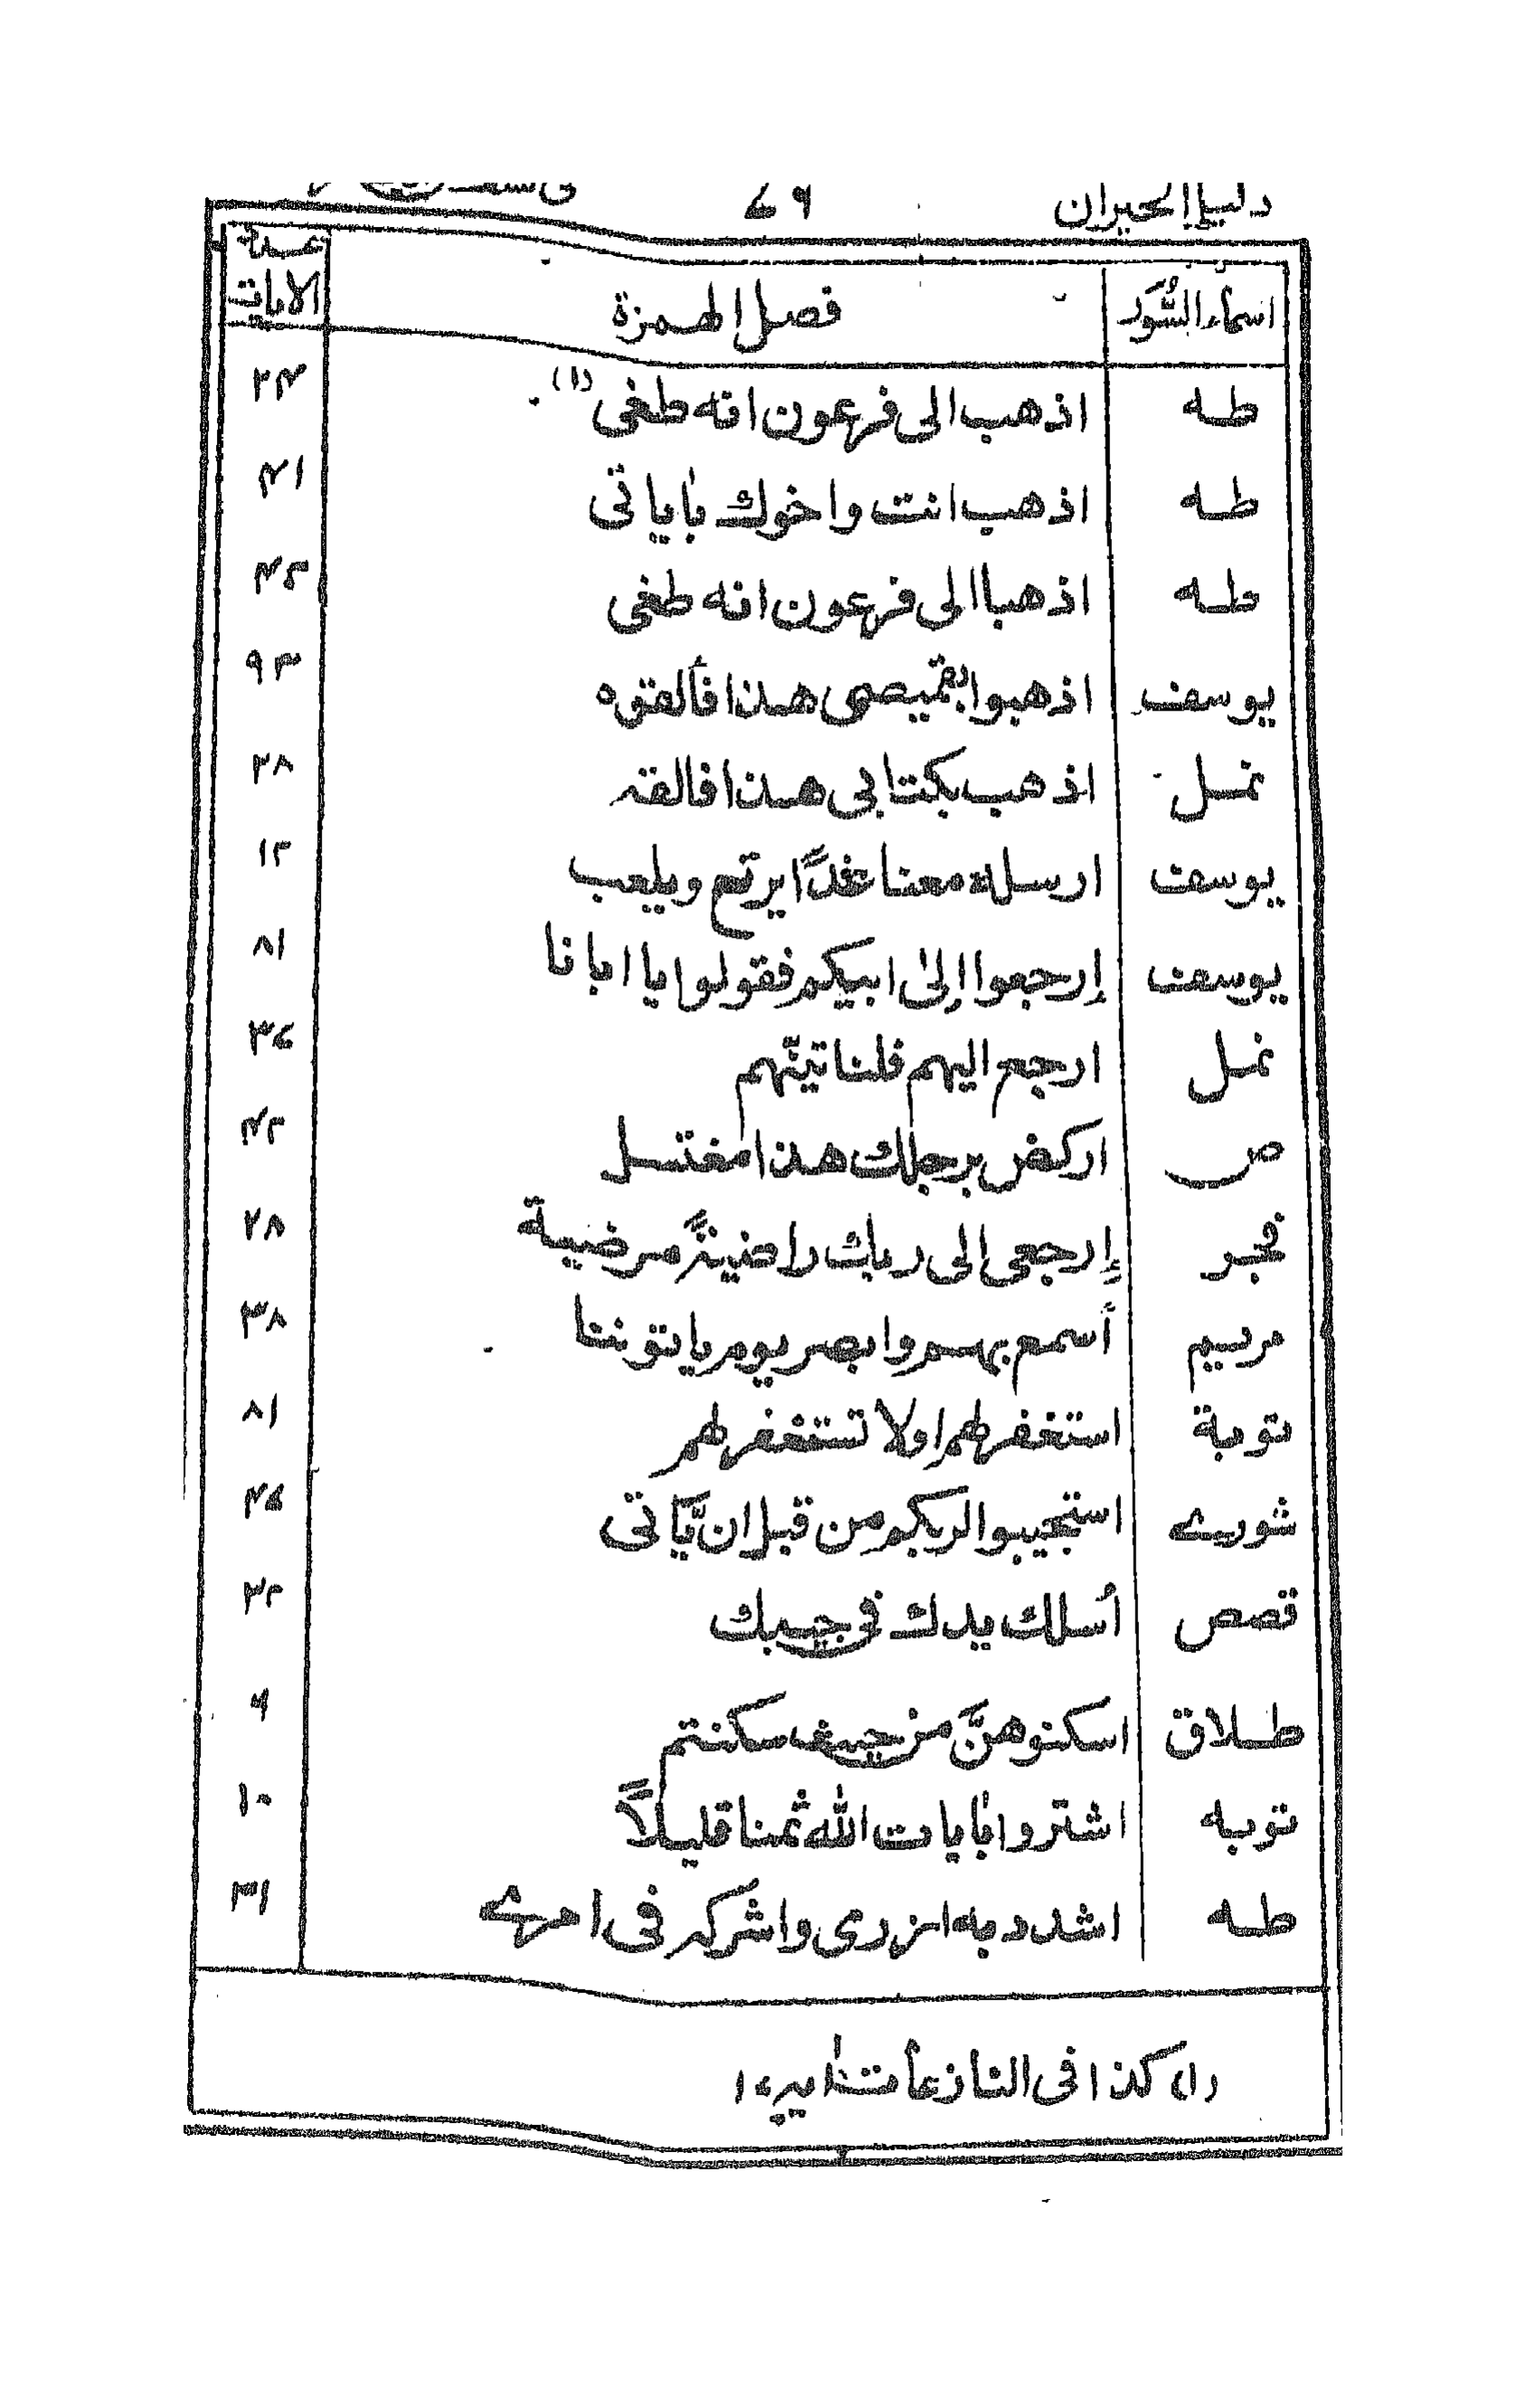 دليل الحيران ٤٦
اسماء السُّوَر فصل الهمزة عدد الايات
طه اذهب الى فرعون انه طغى (١) ٢٤
طه اذهب انت واخوك باياتى ٤٢
طه اذهبا الى فرعون انه طغى ٤٣
يوسف اذهبوا بقميصى هذا فألقوه ٩٣
نمل اذهب بكتابى هذا فالقه ٢٨
يوسف ارسله معنا غداً يرتع ويلعب ١٢
يوسف إرجعوا إلى ابيكم فقولوا يا ابانا ٨١
نمل ارجع اليهم فلناتينّهم ٣٧
ص اركض برجلك هذا مغتسل ٤٢
فجر إرجعى إلى ربك راضيةً مرضية ٢٨
مريم أسمع بهم وابصر يوم ياتوننا ٣٨
توبة استغفر لهم اولا تستغفر لهم ٨١
شورے استجيبوا لربكم من قبل ان يَّأتى ٤٧
قصص اُسلك يدك فى جيبك ٣٢
طلاق اسكنوهنَّ من حيث سكنتم ٦
توبه اشتروا بايات الله ثمنا قليلاً ١٠
طه اشدد به ازرى واشركه فى امرے ٣١
(١) كذا فى النازعات